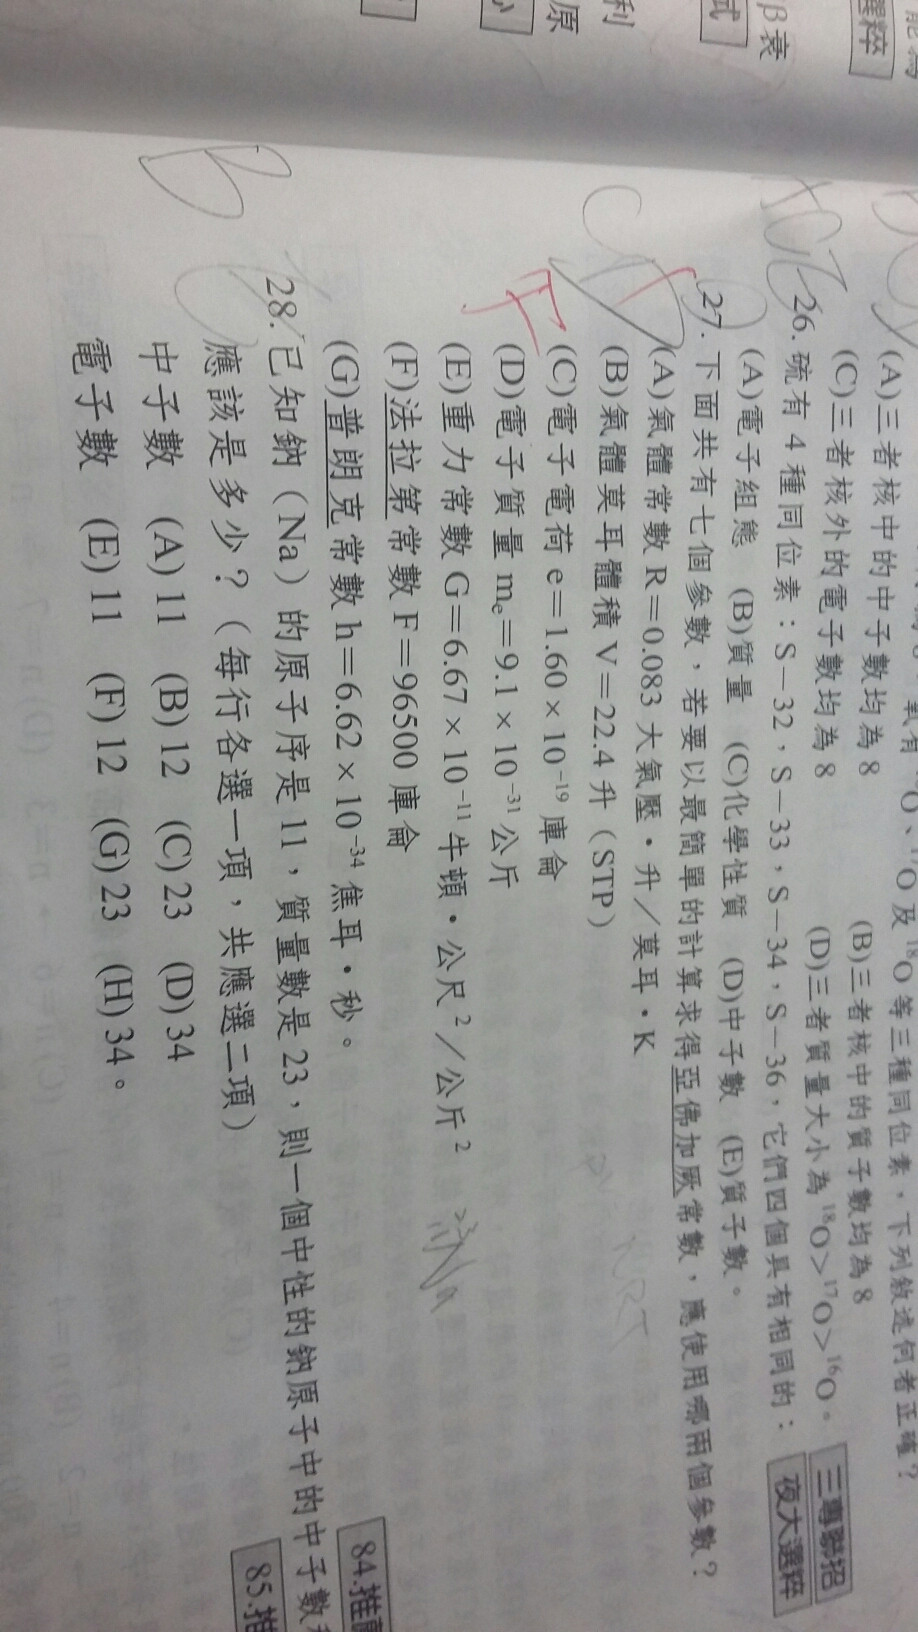 氧有
O、¹⁷O及¹⁸O等三種同位素，下列敘述何者正確？
(A)三者核中的中子數均為8
(B)三者核中的質子數均為8
(C)三者核外的電子數均為8
(D)三者質量大小為¹⁸O＞¹⁷O＞¹⁶O。
三專聯招
26. 硫有4種同位素：S－32，S－33，S－34，S－36，它們四個具有相同的：
夜大選粹
(A)電子組態 (B)質量 (C)化學性質 (D)中子數 (E)質子數。
27. 下面共有七個參數，若要以最簡單的計算求得亞佛加厥常數，應使用哪兩個參數？
(A)氣體常數R＝0.083大氣壓・升／莫耳・K
(B)氣體莫耳體積V＝22.4升（STP）
(C)電子電荷e＝1.60×10⁻¹⁹庫侖
(D)電子質量mₑ＝9.1×10⁻³¹公斤
(E)重力常數G＝6.67×10⁻¹¹牛頓・公尺²／公斤²
(F)法拉第常數F＝96500庫侖
(G)普朗克常數h＝6.62×10⁻³⁴焦耳・秒。
84.推
28. 已知鈉（Na）的原子序是11，質量數是23，則一個中性的鈉原子中的中子數
應該是多少？（每行各選一項，共應選二項）
85.推
中子數 (A)11 (B)12 (C)23 (D)34
電子數 (E)11 (F)12 (G)23 (H)34。
β衰
利
原
選粹
式
B
F